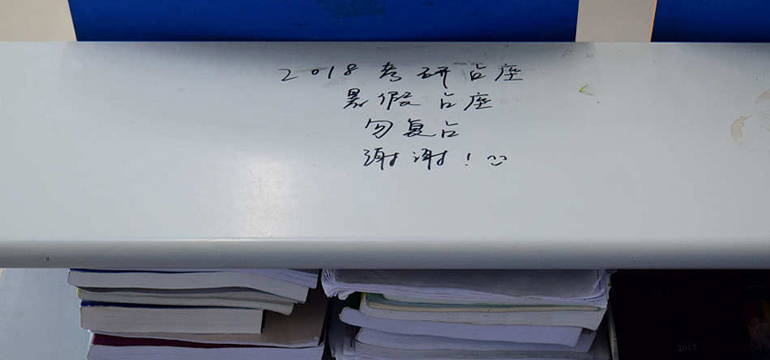 2018考研占座
暑假占座
勿复占
谢谢！
2017